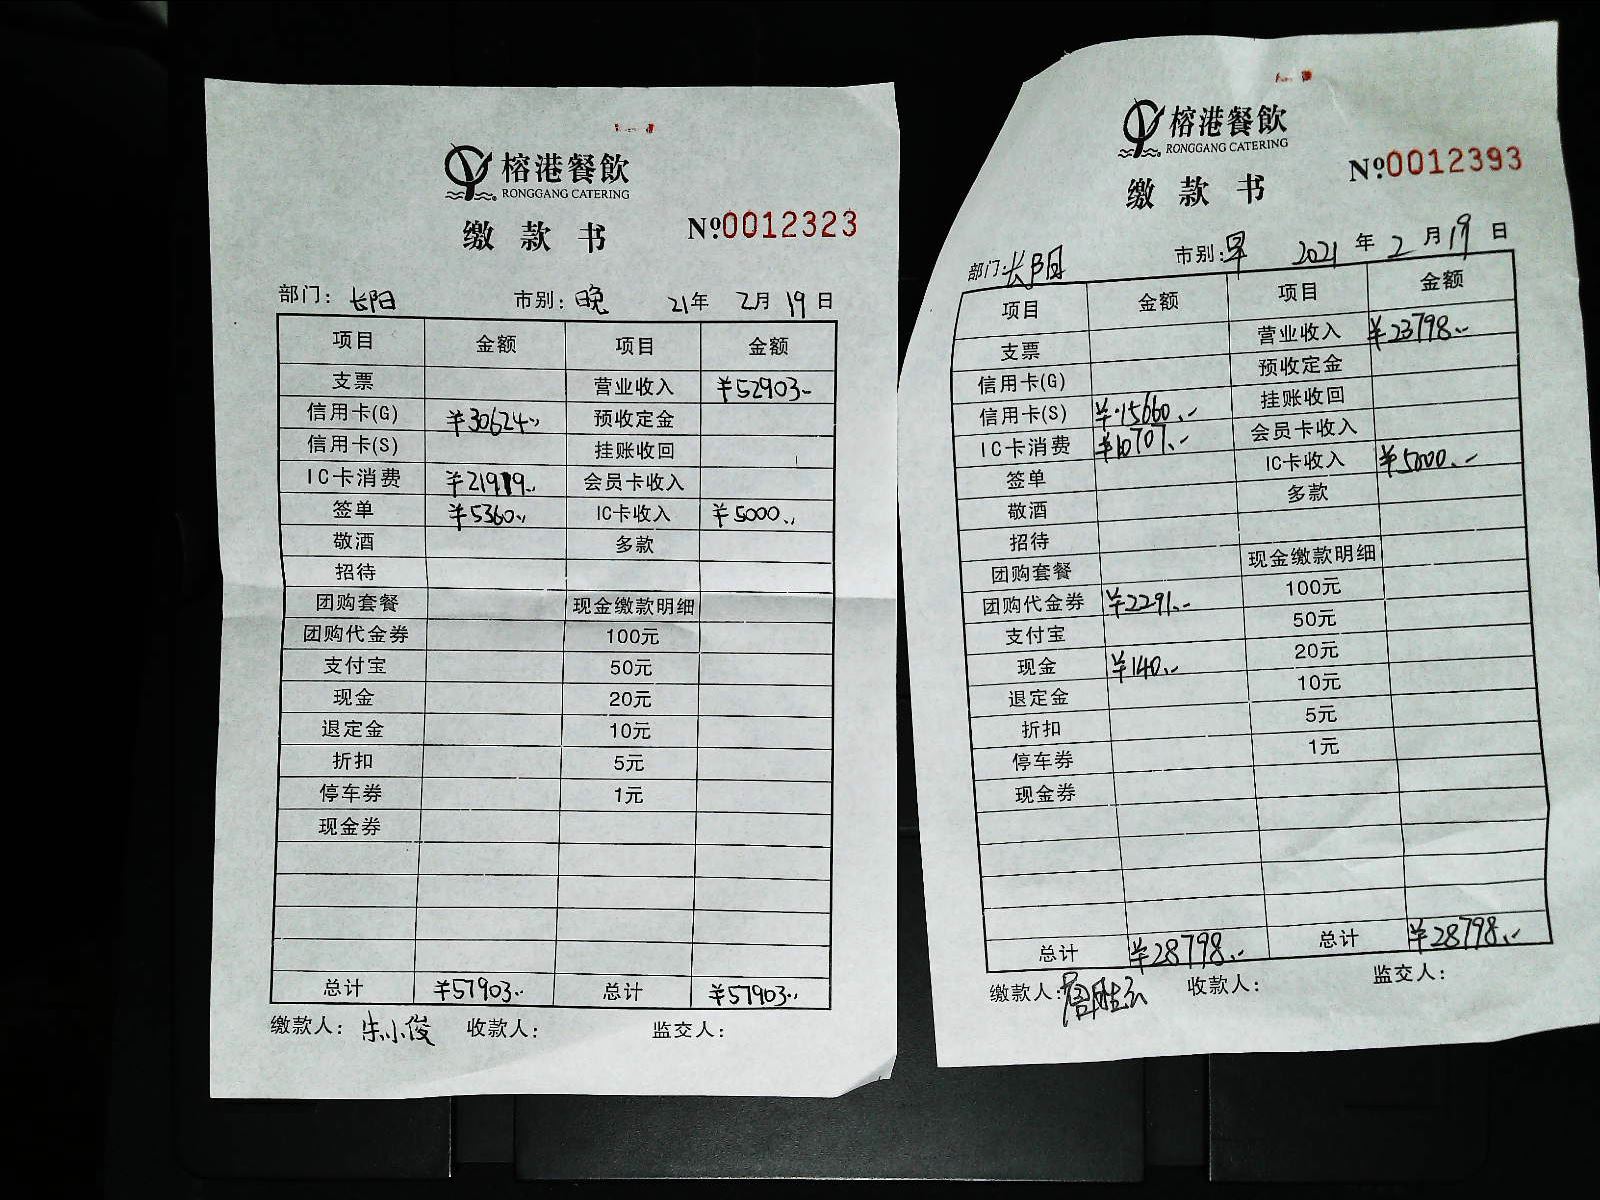 榕港餐飲
RONGGANG CATERING
缴款书
№0012323
部门：长阳 市别：晚 21年 2月 19日
项目 金额 项目 金额
支票 营业收入 ¥52903-
信用卡(G) ¥30624.- 预收定金
信用卡(S) 挂账收回
IC卡消费 ¥21919.. 会员卡收入
签单 ¥5360.. IC卡收入 ¥5000..
敬酒 多款
招待
团购套餐 现金缴款明细
团购代金券 100元
支付宝 50元
现金 20元
退定金 10元
折扣 5元
停车券 1元
现金券
总计 ¥57903.. 总计 ¥57903..
缴款人：朱小俊 收款人： 监交人：
榕港餐飲
RONGGANG CATERING
缴款书
№0012393
部门：长阳 市别：早 2021年 2月 19日
项目 金额 项目 金额
支票 营业收入 ¥23798.-
信用卡(G) 预收定金
信用卡(S) ¥15660.- 挂账收回
IC卡消费 ¥10707.- 会员卡收入
签单 IC卡收入 ¥5000.-
敬酒 多款
招待
团购套餐 现金缴款明细
团购代金券 ¥2291.- 100元
支付宝 50元
现金 ¥140.- 20元
退定金 10元
折扣 5元
停车券 1元
现金券
总计 ¥28798.- 总计 ¥28798.-
缴款人： 收款人： 监交人：